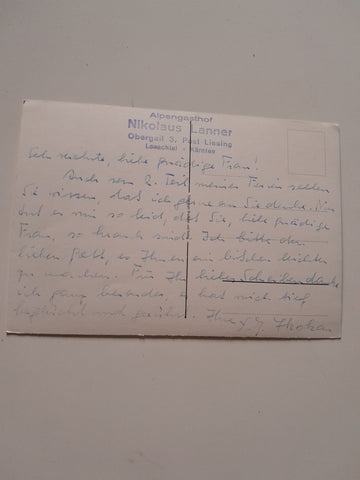 Alpengasthof
Nikolaus Lanner
Obergail 3, Post Liesing
Lesachtal - Kärnten
Sehr verehrte, liebe gnädige Frau!
Auch vom 2. Teil meiner Ferien sollen
Sie wissen, daß ich gerne an Sie denke. Nun
tut es mir so leid, daß Sie, liebe gnädige
Frau, so krank sind. Ich bitte den
lieben Gott, es Ihnen ein bißchen leichter
zu machen. Für Ihr liebes Schreiben danke
ich ganz besonders, es hat mich tief
beglückt und gerührt. Ihre